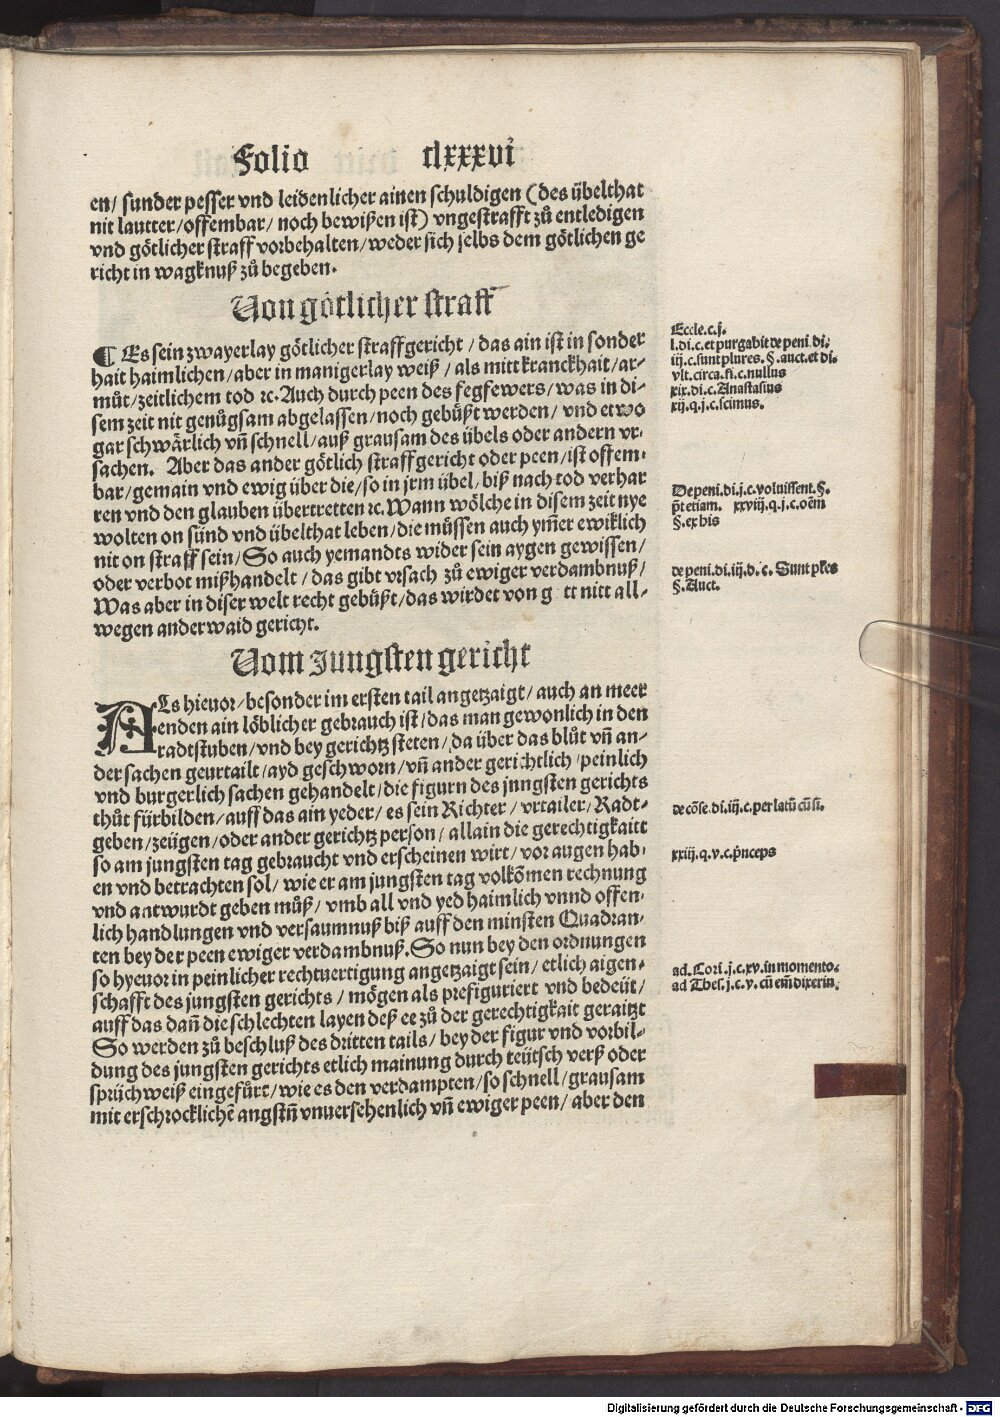 Folio clxxxvi
en/ sunder pesser vnd leidenlicher ainen schuldigen (des übelthat
nit lautter/offembar/ noch bewißen ist) vngestrafft zů entledigen
vnd götlicher straff vorbehalten/weder sich selbs dem götlichen ge
richt in wagknuß zů begeben.
Von götlicher straff
¶ Es sein zwayerlay götlicher straffgericht/ das ain ist in sonder
hait haimlichen/aber in manigerlay weiß/ als mitt kranckhait/ar-
můt/zeitlichem tod ꝛc. Auch durch peen des fegfewers/was in di-
sem zeit nit genůgsam abgelassen/noch gebüßt werden/ vnd etwo
gar schwärlich vñ schnell/auß grausam des übels oder andern vr-
sachen. Aber das ander götlich straffgericht oder peen/ist offem-
bar/gemain vnd ewig über die/so in jrm übel/biß nach tod verhar
ren vnd den glauben übertretten ꝛc. Wann wölche in disem zeit nye
wolten on sünd vnd übelthat leben/die müssen auch ym̃er ewiklich
nit on straff sein/ So auch yemandts wider sein aygen gewissen/
oder verbot mißhandelt/das gibt vrsach zů ewiger verdambnuß/
Was aber in diser welt recht gebüßt/das wirdet von g tt nitt all-
wegen anderwaid gericht.
Vom Jungsten gericht
ALs hieuor/besonder im ersten tail angetzaigt/auch an meer
enden ain löblicher gebrauch ist/das man gewonlich in den
radtstuben/vnd bey gerichtz steten/da über das blůt vñ an-
der sachen geurtailt/ayd geschworn/vñ ander gerichtlich/peinlich
vnd burgerlich sachen gehandelt/die figurn des jungsten gerichts
thůt fürbilden/auff das ain yeder/es sein Richter/vrtailer/Radt-
geben/zeügen/oder ander gerichtz person/allain die gerechtigkaitt
so am jungsten tag gebraucht vnd erscheinen wirt/vor augen hab-
en vnd betrachten sol/wie er am jungsten tag volkõmen rechnung
vnd antwurdt geben můß/vmb all vnd yed haimlich vnnd offen-
lich handlungen vnd versaumnuß biß auff den minsten Quadran-
ten bey der peen ewiger verdambnuß. So nun bey den ordnungen
so hyeuor in peinlicher rechtuertigung angetzaigt sein/etlich aigen-
schafft des jungsten gerichts/mögen als prefiguriert vnd bedeüt/
auff das dañ die schlechten layen deß ee zů der gerechtigkait geraitzt
So werden zů beschluß des dritten tails/bey der figur vnd vorbil-
dung des jungsten gerichts etlich mainung durch teütsch verß oder
sprüchweiß eingefürt/wie es den verdampten/so schnell/grausam
mit erschrocklichẽ angstñ vnuersehenlich vñ ewiger peen/aber den
Eccle.c.j.
l.di.c.et purgabit de peni.di.
iij.c.sunt plures.§.auct.et di.
vlt.circa.fi.c.nullus
xix.di.c.Anastasius
xij.q.j.c.scimus.
De peni.di.j.c.voluissent.§.
p̃t etiam. xxviij.q.j.c.oẽm
§.ex his
de peni.di.iij.d.c.Sunt pl'es
§.Auct.
de cõse.di.iij.c.perlatũ cũ si.
xxiij.q.v.c.p̃nceps
ad.Cori.j.c.xv.in momento.
ad Thes.j.c.v.cũ em̃ dixerin.
Digitalisierung gefördert durch die Deutsche Forschungsgemeinschaft - DFG